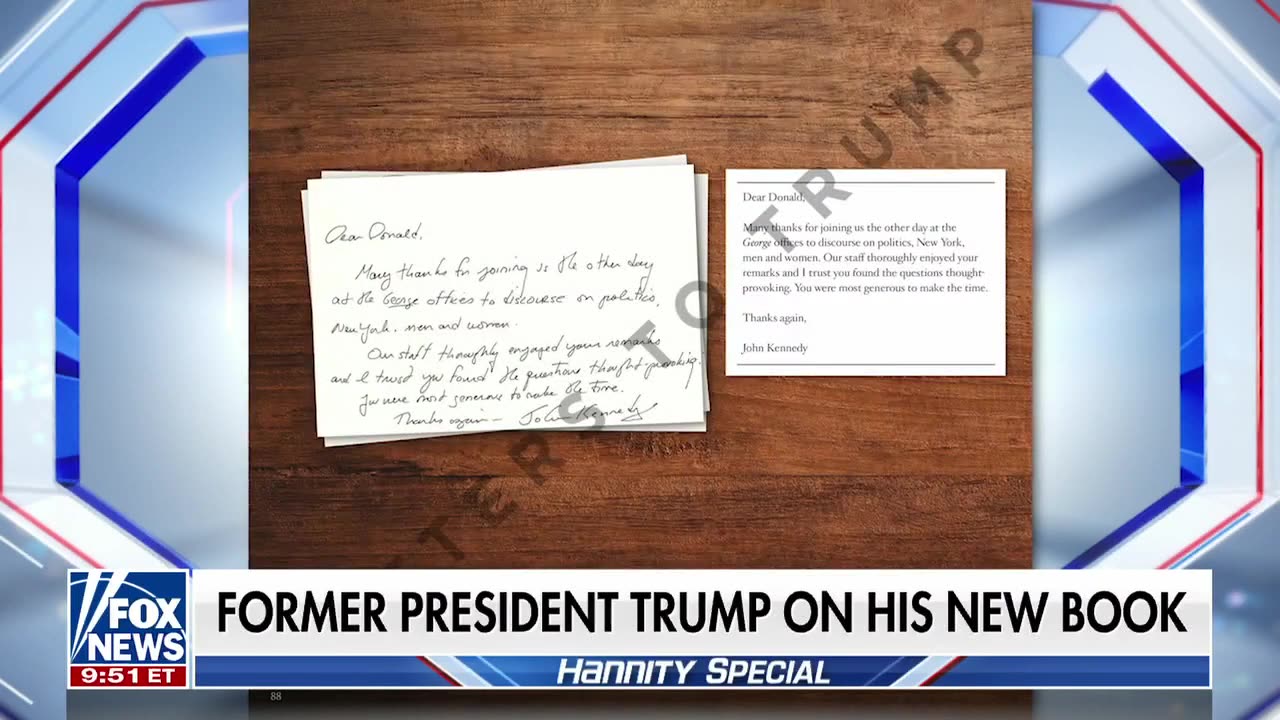 LETTERS TO TRUMP
Dear Donald,
Many thanks for joining us the other day
at the George offices to discourse on politics,
New York, men and women.
Our staff thoroughly enjoyed your remarks
and I trust you found the questions thought-provoking.
You were most generous to make the time.
Thanks again – John Kennedy
Dear Donald,
Many thanks for joining us the other day at the
George offices to discourse on politics, New York,
men and women. Our staff thoroughly enjoyed your
remarks and I trust you found the questions thought-
provoking. You were most generous to make the time.
Thanks again,
John Kennedy
FOX
NEWS
9:51 ET
FORMER PRESIDENT TRUMP ON HIS NEW BOOK
HANNITY SPECIAL
88